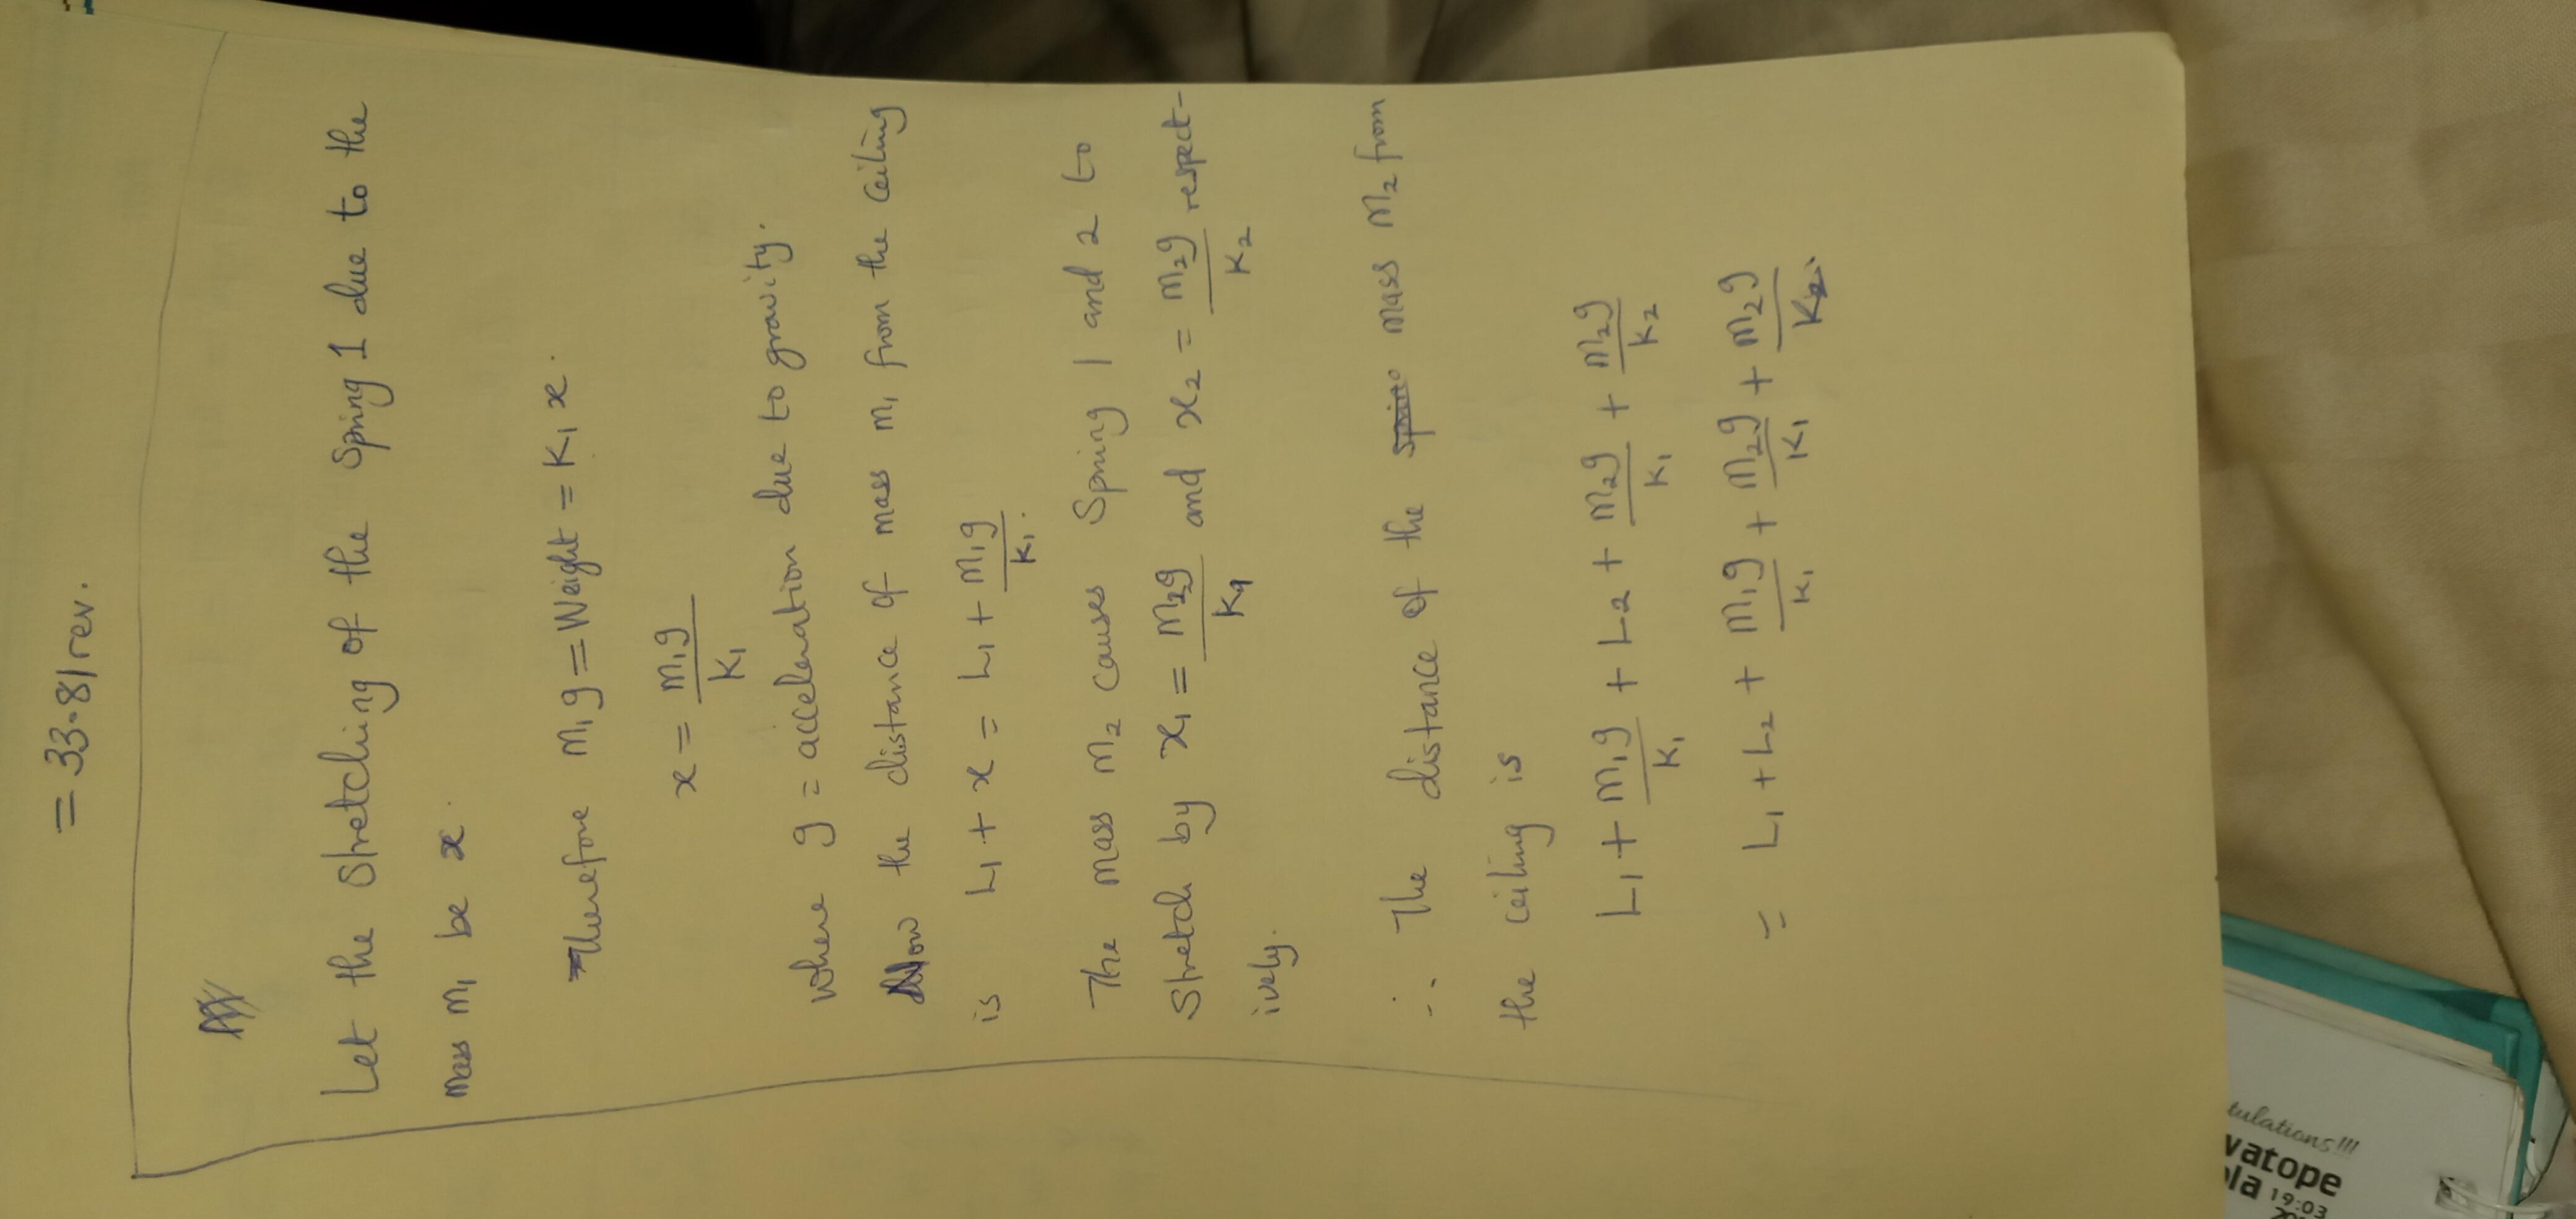 = 33.81rev.
Let the Stretching of the Spring 1 due to the
mass m₁ be x.
Therefore m₁g = Weight = K₁x.
x = m₁g/K₁
where g = acceleration due to gravity.
Now the distance of mass m₁ from the ceiling
is L₁ + x = L₁ + m₁g/K₁.
The mass m₂ causes Spring 1 and 2 to
Stretch by x₁ = m₂g/K₁ and x₂ = m₂g/K₂ respect-
ively.
∴ The distance of the mass m₂ from
the ceiling is
L₁ + m₁g/K₁ + L₂ + m₂g/K₁ + m₂g/K₂
= L₁ + L₂ + m₁g/K₁ + m₂g/K₁ + m₂g/K₂.
tulations!!!
vatope
la 19:03